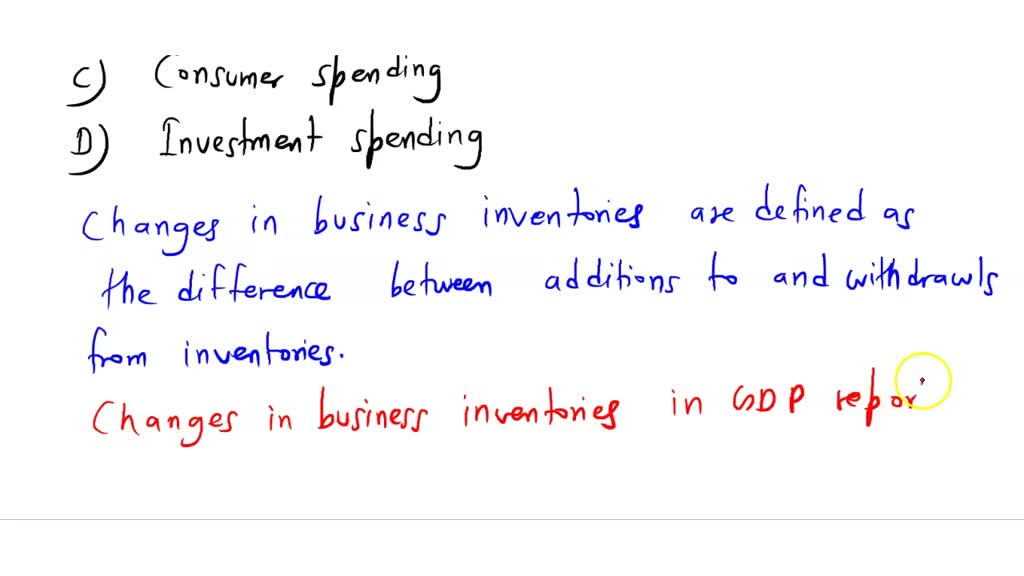 C) Consumer spending
D) Investment spending
Changes in business inventories are defined as
the difference between additions to and withdrawls
from inventories.
Changes in business inventories in GDP repor